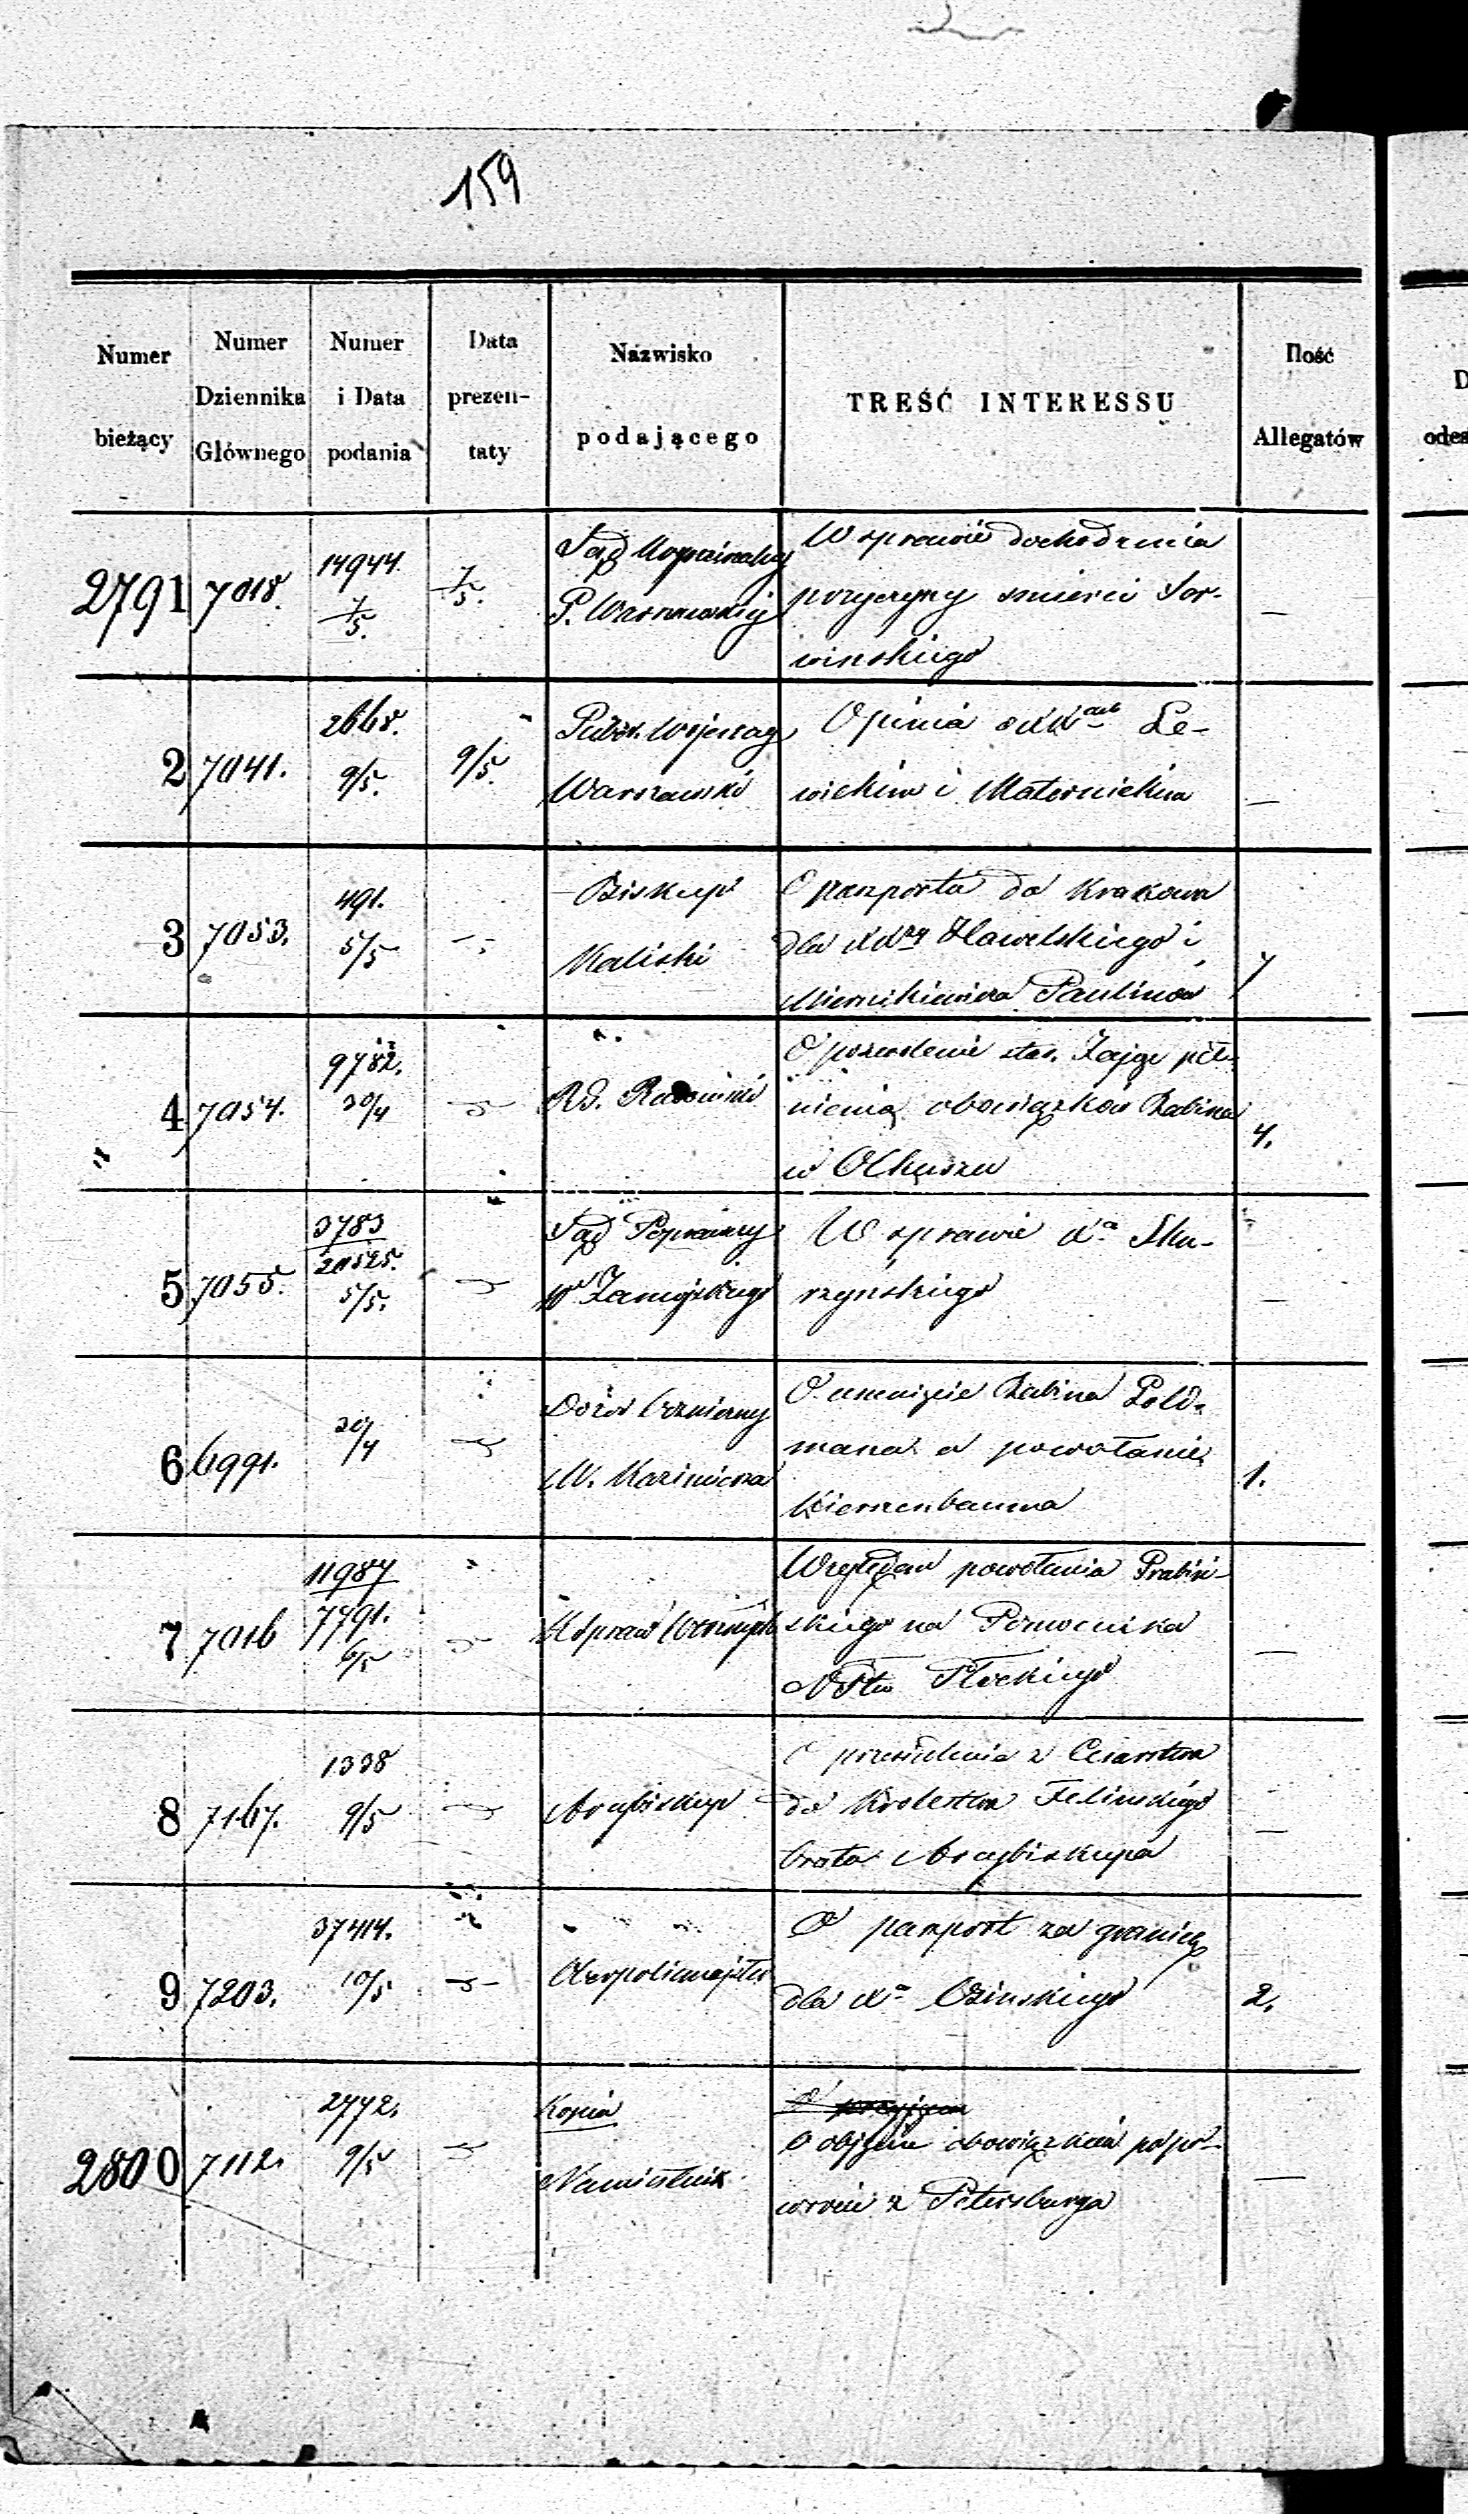 159
Numer bieżący
Numer Dziennika Głównego
Numer i Data podania
Data prezentaty
Nazwisko podającego
TREŚĆ INTERESSU
Ilość Allegatów
2791 7018. 14944. 7/5. 7/5.
P. Warszawskiej
W sprawie dochodzenia
przyczyny smierci Sor-
winskiego
—
2 7041. 2668. 9/5. 9/5.
Warszawski
Opinia o
wickim i Maternickim
—
3 7053. 491. 5/5
Biskup
Kaliski
O paszporta do Krakowa
dla Hawelskiego i
Miernikiewicza Paulinów
7
4 7054. 9782. 30/4
Rd. Radomski
O pozwolenie star. Zajge peł-
nienia obowiązków Rabina
w Olkuszu
4.
5 7055. 3783
20525.
5/5.
Sąd Poprawczy
W sprawie Xa Sku-
rzynskiego
—
6 6991. 30/4
Dozór
M. Kazimierza
O usunięcie Rabina Gold-
mana a powołanie
Kierszenbauma
1.
7 7016 11987
7791.
6/5
Względem powołania
skiego na Pomocnika
Płockiego
—
8 7167. 1338 9/5
Arcybiskup
O przesiedlenie z Cesarstwa
do Krolestwa Felinskiego
brata Arcybiskupa
—
9 7203. 37414. 10/5
Oberpolicmajster
O paszport za granicę
dla Xa Ozinskiego
2.
2800 7112. 2772. 9/5
Kopia
Namiestnik
O objęciu obowiązków po po-
wrocie z Petersburga
—